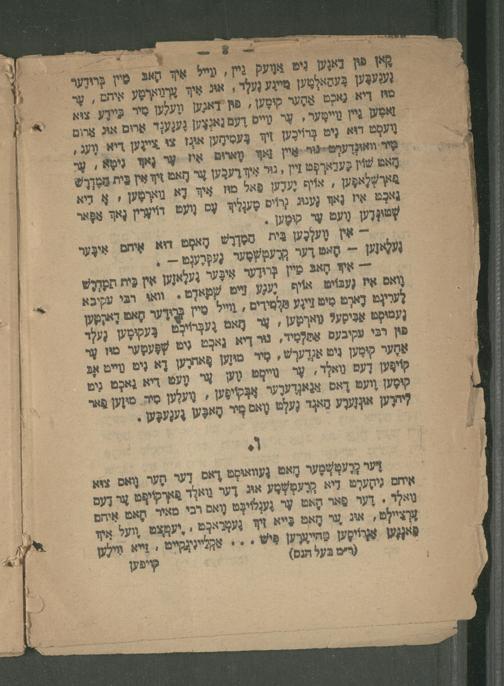 — 8 —
קאן פון דאנען ניט אוועק גיין, ווייל איך האב מיין ברודער
געגעבען בעהאלטען מיינע געלד, און איך ערווארטע איהם, ער
מוז דיא נאכט אהער קומען, פון דאנען וועלען מיר ביידע צוא
זאמען גיין ווייטער, ער ווייס דעם גאנצען געגענד ארום און ארום
וועסט דוא ניט ברויכען זיך בעמיהען אונז צו צייגען דיא וועג,
מיר וואונדערט נור איין זאך ווארום איז ער נאך ניטא, ער
האט שוין בעדארפט זיין, נור איך דענק ער האט זיך אין בית המדרש
פארשלאפען, אויף יעדען פאל מוז איך דא ווארטען, א דיא
נאכט איז נאך גענוג גרויס מעגליך עס וועט דויערן נאך אפאר
שטונדען וועט ער קומען.
— אין וועלכען בית המדרש האסט דוא איהם איבער
געלאזען — האט דער קרעטשמער געפרעגט —.
— איך האב מיין ברודער איבער געלאזען אין בית המדרש
וואס איז געבויט אויף יענע זייט שטאדט. וואו רבי עקיבא
לערינט דארט מיט זיינע תלמידים, ווייל מיין ברודער האט דארטען
געמוסט אביסעל ווארטען, ער האט געברויכט בעקומען געלד
פון רבי עקיבעס אתלמיד, נור דיא נאכט ניט שפעטער מוז ער
אהער קומען ניט אנדערש, מיר מוזען פארהרען דא ניט ווייט אפ
קויפען דעם וואלד, ער ווייסט ווען ער וועט דיא נאכט ניט
קומען וועט דאס אנאנדערער אפקויפען, וועלען מיר מוזען פאר
ליהרען אונזערע האנד געלט וואס מיר האבען געגעבען.
ו.
דער קרעטשמער האט געוואוסט דאס דער הער וואס צוא
איהם גיהערט דיא קרעטשמע און דער וואלד פארקויפט ער דעם
וואלד. דער פאר האט ער געגלויבט וואס רבי מאיר האט איהם
ערציילט, און ער האט בייא זיך געטראכט, יעמצט וועל איך
פאנגען אגרויסען טהייערען פיש... אקלייניגקייט, זייא ווילען
(ר״מ בעל הנס)
קויפען